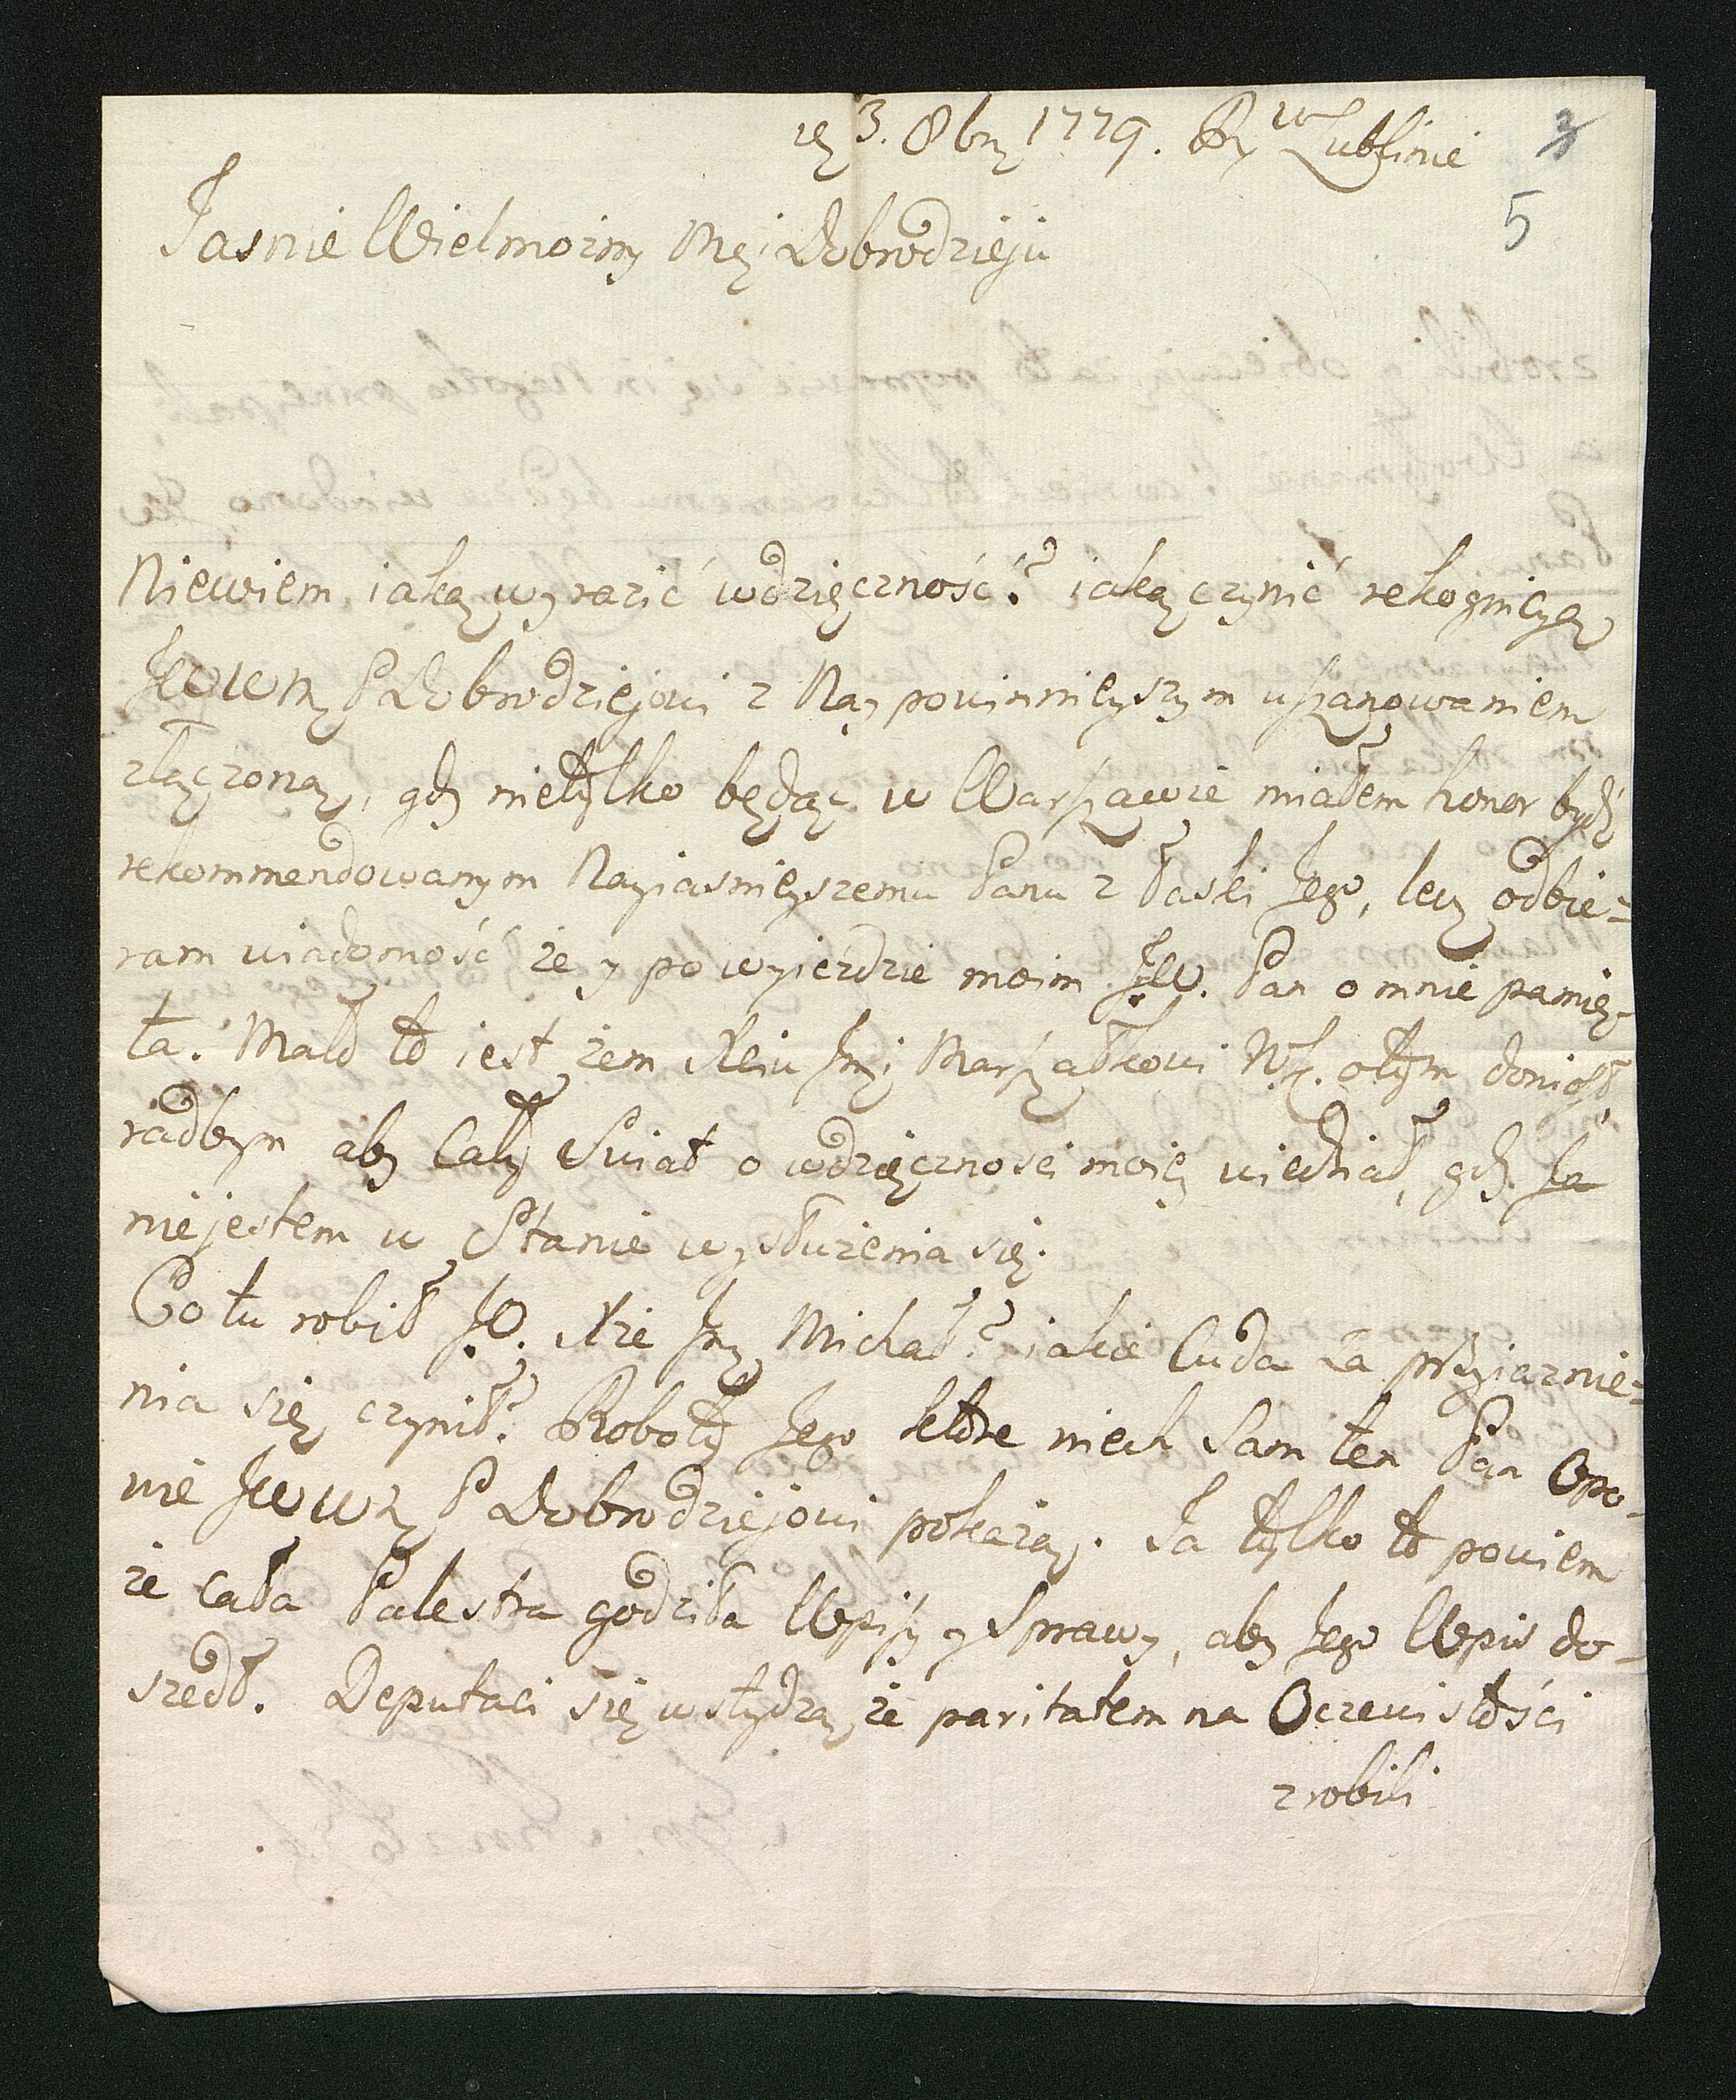 3. 8bry 1779. Ry w Lublinie
3
5
Jasnie Wielmożny Mci Dobrodzieju
Niewiem iaką wyrazić wdzięczność? iaką czynić rekognicyą
JWWM P Dobrodziejowi z Naypowinnieyszym uszanowaniem
złączoną, gdy nietylko będąc w Warszawie miałem honor bydź
rekommendowanym Nayiasnieyszemu Panu z łaski Jego, lecz odbie=
ram wiadomość że y po wyjeździe moim JW. Pan o mnie pamię-
ta. Mało to iest żem Xciu Jmci Marszałkowi o tym doniosł,
radbym aby Cały Swiat o wdzięcznosci moiey wiedział, gdy Ja
niejestem w Stanie wysłużenia się.
Co tu robił JO. Xże Jmć Michał? iakie Cuda Za przyiaznie=
nia się czynił? Roboty Jego ktore niech Sam ten Pan Opo-
wie JWWM P Dobrodziejowi pokażą. Ja tylko to powiem
że cała Palestra godziła Wpisy y Sprawy, aby Jego Wpis do-
szedł. Deputaci się wstydzą, że paritatem na Oczewistości
zrobili